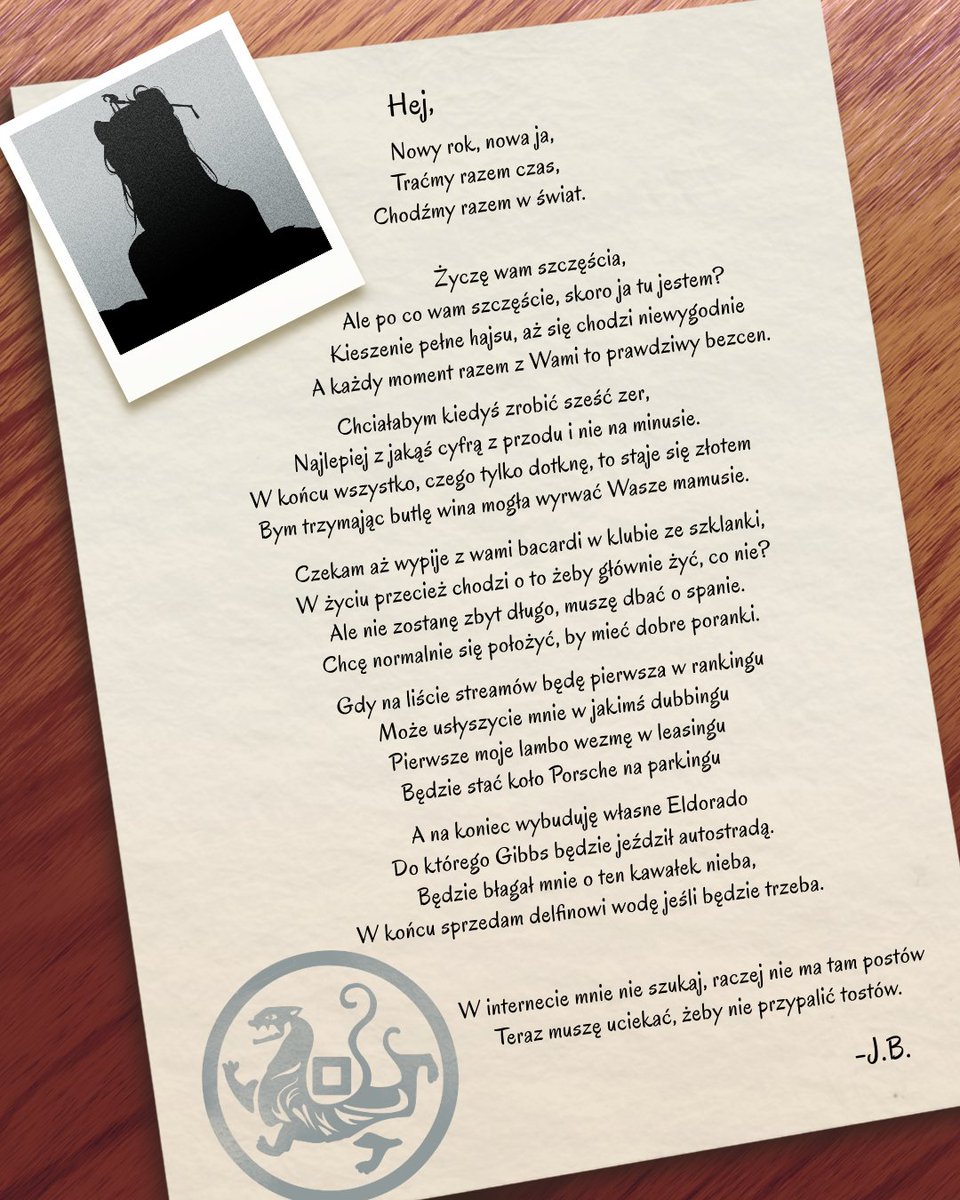 Hej,
Nowy rok, nowa ja,
Traćmy razem czas,
Chodźmy razem w świat.
Życzę wam szczęścia,
Ale po co wam szczęście, skoro ja tu jestem?
Kieszenie pełne hajsu, aż się chodzi niewygodnie
A każdy moment razem z Wami to prawdziwy bezcen.
Chciałabym kiedyś zrobić sześć zer,
Najlepiej z jakąś cyfrą z przodu i nie na minusie.
W końcu wszystko, czego tylko dotknę, to staje się złotem
Bym trzymając butlę wina mogła wyrwać Wasze mamusie.
Czekam aż wypije z wami bacardi w klubie ze szklanki,
W życiu przecież chodzi o to żeby głównie żyć, co nie?
Ale nie zostanę zbyt długo, muszę dbać o spanie.
Chcę normalnie się położyć, by mieć dobre poranki.
Gdy na liście streamów będę pierwsza w rankingu
Może usłyszycie mnie w jakimś dubbingu
Pierwsze moje lambo wezmę w leasingu
Będzie stać koło Porsche na parkingu
A na koniec wybuduję własne Eldorado
Do którego Gibbs będzie jeździł autostradą.
Będzie błagał mnie o ten kawałek nieba,
W końcu sprzedam delfinowi wodę jeśli będzie trzeba.
W internecie mnie nie szukaj, raczej nie ma tam postów
Teraz muszę uciekać, żeby nie przypalić tostów.
-J.B.